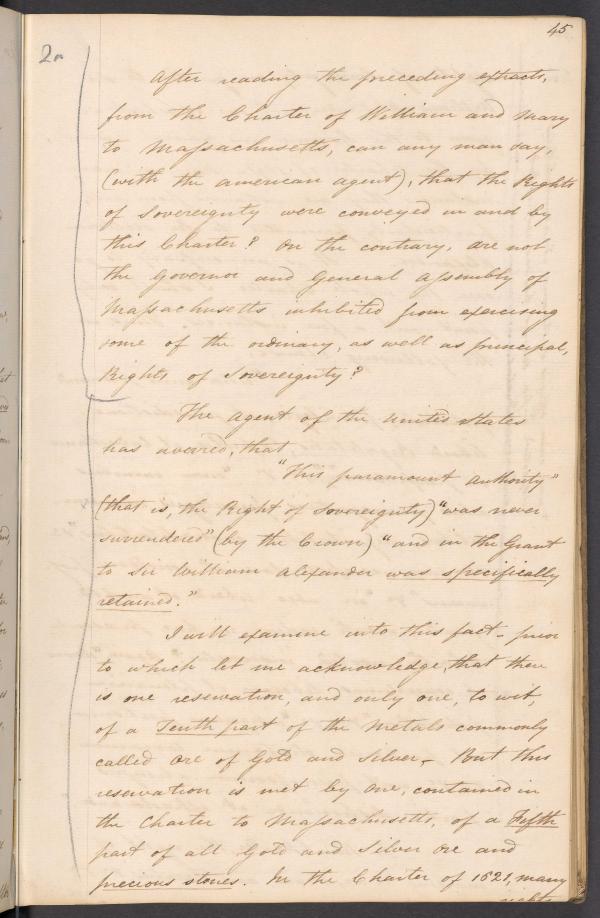 45
2n
After reading the preceding extracts,
from the Charter of William and Mary
to Massachusetts, can any man say,
(with the american agent), that the Rights
of Sovereignty were conveyed in and by
this Charter? On the contrary, are not
the Governor and General Assembly of
Massachusetts inhibited from exercising
some of the ordinary, as well as principal,
Rights of Sovereignty?
The Agent of the United States
has averred, that
"This paramount authority"
(that is, the Right of Sovereignty) "was never
surrendered" (by the Crown) "and in the Grant
to Sir William Alexander was specifically
retained."
I will examine into this fact - prior
to which let me acknowledge, that there
is one reservation, and only one, to wit,
of a Tenth part of the metals commonly
called Ore of Gold and Silver. But this
reservation is met by one, contained in
the Charter to Massachusetts, of a Fifth
part of all Gold and Silver Ore and
precious stones. In the Charter of 1621, many
rights